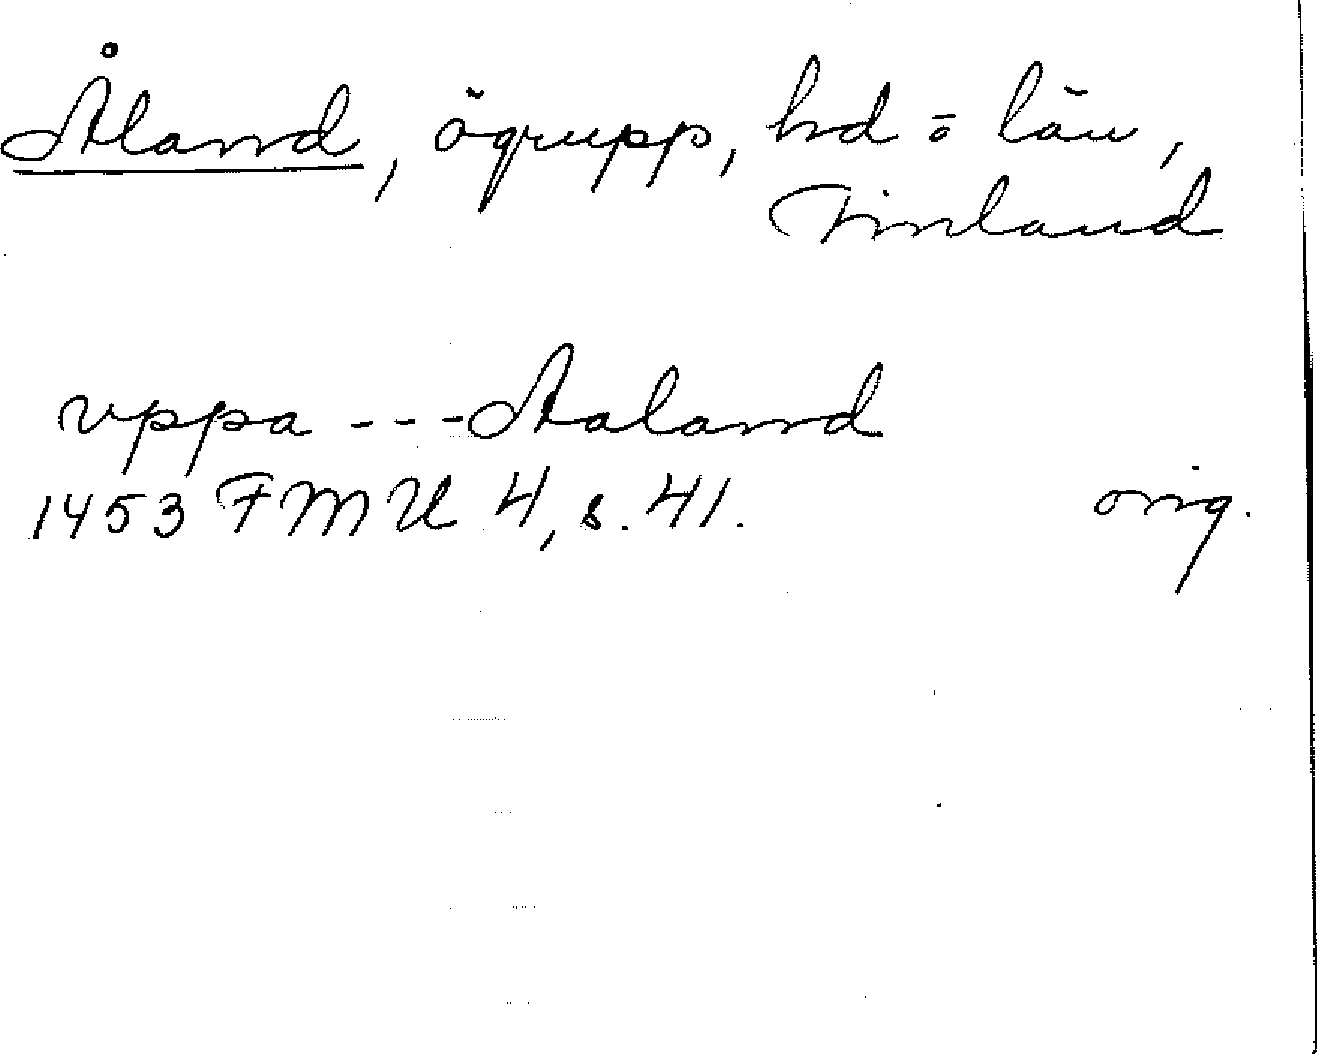 Åland, ögrupp, hd o län,
Finland
vppa --- Aaland
1453 FMU 4, s. 41. orig.